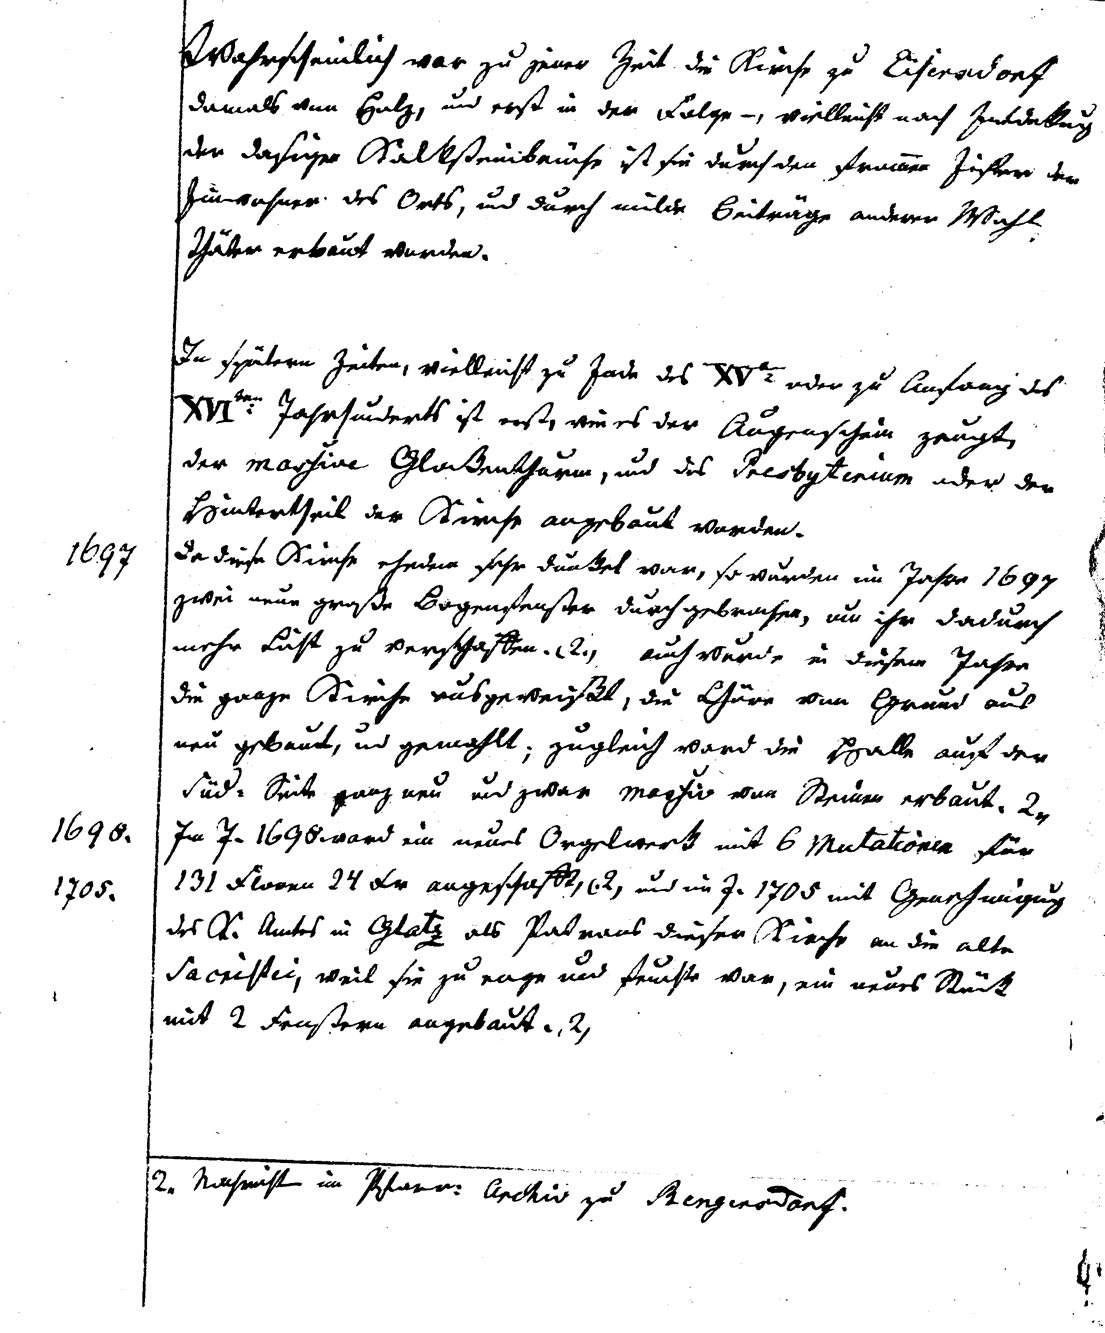 Wahrscheinlich war zu jener Zeit die Kirche zu Eisersdorf
damals von Holz, und erst in der Folge –, vielleicht nach Entdekkung
der dasigen Kalksteinbrüche ist sie durch den frommen Eifer der
Einwohner des Orts, und durch milde Beiträge anderer Wohl
thäter erbaut worden.
In spätern Zeiten, vielleicht zu Ende des XVten oder zu Anfang des
XVIten Jahrhunderts ist erst, wie es der Augenschein zeugt,
der massive Glokenthurm, und das Presbyterium oder der
Hintertheil der Kirche angebaut worden.
1697 Da diese Kirche ehedem sehr dunkel war, so wurden im Jahre 1697
zwei neue große Bogenfenster durchgebrochen, um ihr dadurch
mehr Licht zu verschaffen. (2., auch wurde in diesem Jahre
die ganze Kirche ausgeweißt, die Chöre vom Grund aus
neu gebaut, und gemahlt; zugleich ward die Halle auf der
Süd: Seite ganz neu und zwar massiv von Steinen erbaut. 2,,
1698. Im J. 1698 ward ein neues Orgelwerk mit 6 Mutationen für
1705. 131 Floren 24 Kr angeschafft, (2, und im J. 1705 mit Genehmigung
des K. Amtes in Glatz als Patrons dieser Kirche an die alte
Sacristei, weil sie zu enge und feucht war, ein neues Stück
mit 2 Fenstern angebaut. (2,
2. Nachricht im Pfarr: Archiv zu Rengersdorf.